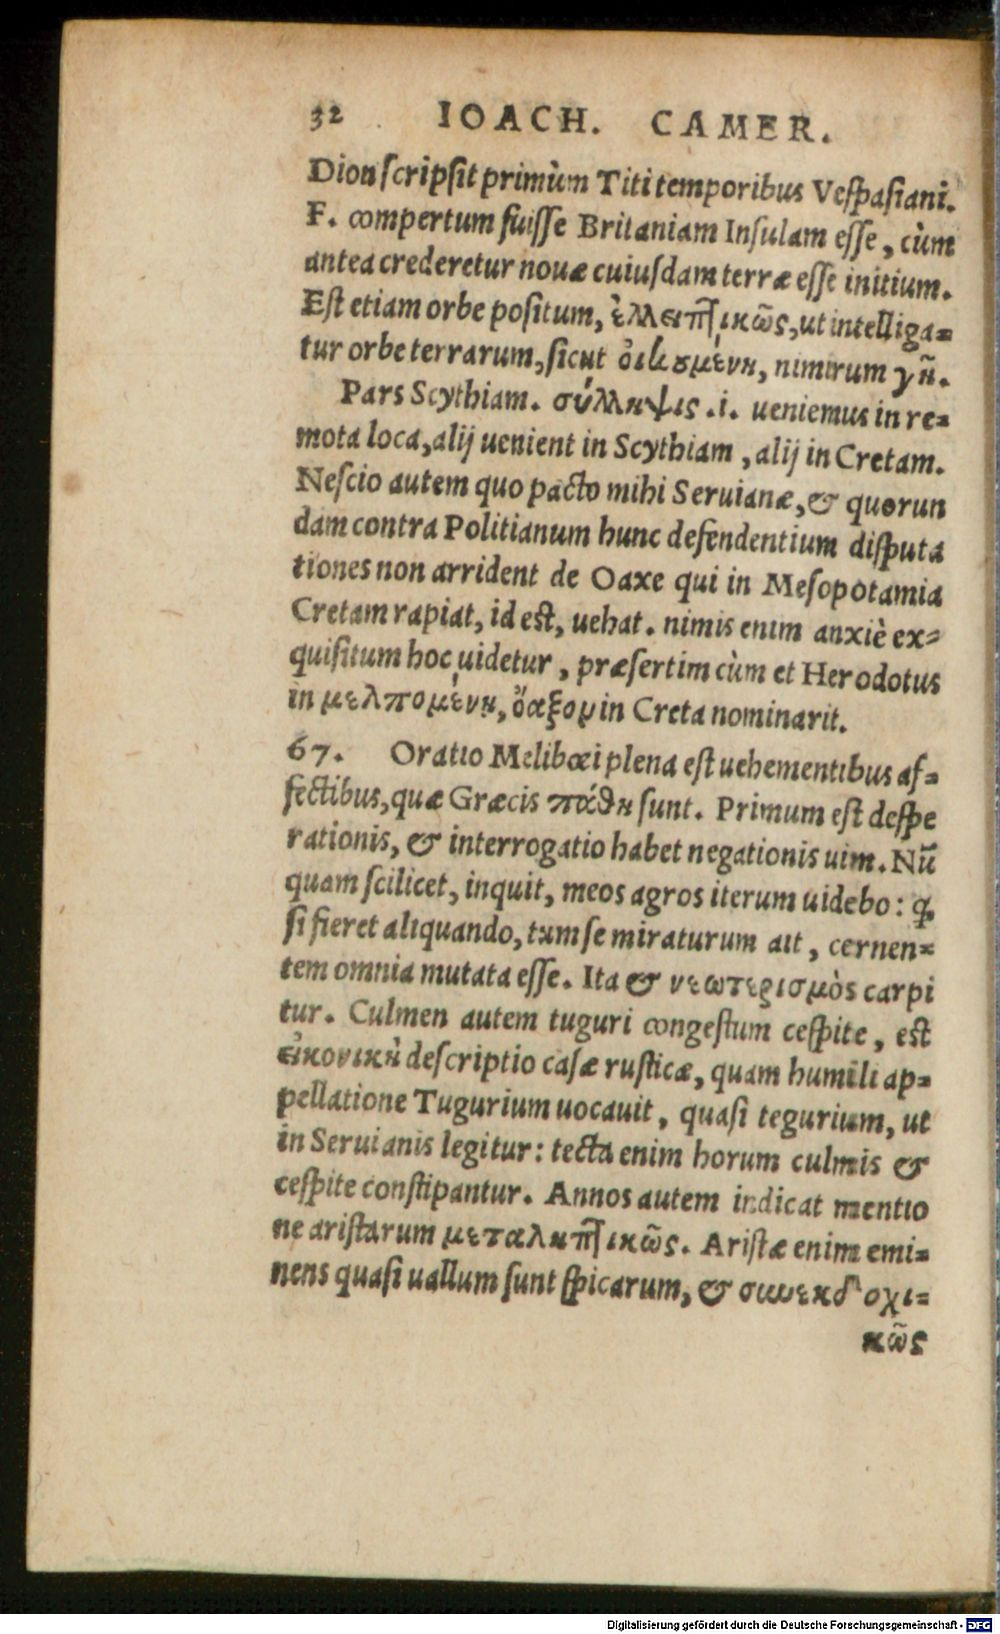 32 IOACH. CAMER.
Dion scripsit primùm Titi temporibus Vespasiani.
F. compertum fuisse Britaniam Insulam esse, cùm
antea crederetur nouæ cuiusdam terræ esse initium.
Est etiam orbe positum, ἐλλειπτικῶς, ut intelliga=
tur orbe terrarum, sicut οἰκουμένη, nimirum γῆ.
Pars Scythiam. σύλληψις .i. ueniemus in re=
mota loca, alij uenient in Scythiam, alij in Cretam.
Nescio autem quo pacto mihi Seruianæ, & quorun
dam contra Politianum hunc defendentium disputa
tiones non arrident de Oaxe qui in Mesopotamia
Cretam rapiat, id est, uehat. nimis enim anxiè ex=
quisitum hoc uidetur, præsertim cùm et Herodotus
in μελπομένῃ, ὄαξον in Creta nominarit.
67. Oratio Melibœi plena est uehementibus af=
fectibus, quæ Græcis πάθη sunt. Primum est despe
rationis, & interrogatio habet negationis uim. Nũ
quam scilicet, inquit, meos agros iterum uidebo: ꝙ
si fieret aliquando, tum se miraturum ait, cernen=
tem omnia mutata esse. Ita & νεωτερισμὸς carpi
tur. Culmen autem tuguri congestum cespite, est
εἰκονικὴ descriptio casæ rusticæ, quam humili ap=
pellatione Tugurium uocauit, quasi tegurium, ut
in Seruianis legitur: tecta enim horum culmis &
cespite constipantur. Annos autem indicat mentio
ne aristarum μεταληπτικῶς. Aristæ enim emi=
nens quasi uallum sunt spicarum, & συνεκδοχι=
κῶς
Digitalisierung gefördert durch die Deutsche Forschungsgemeinschaft - DFG